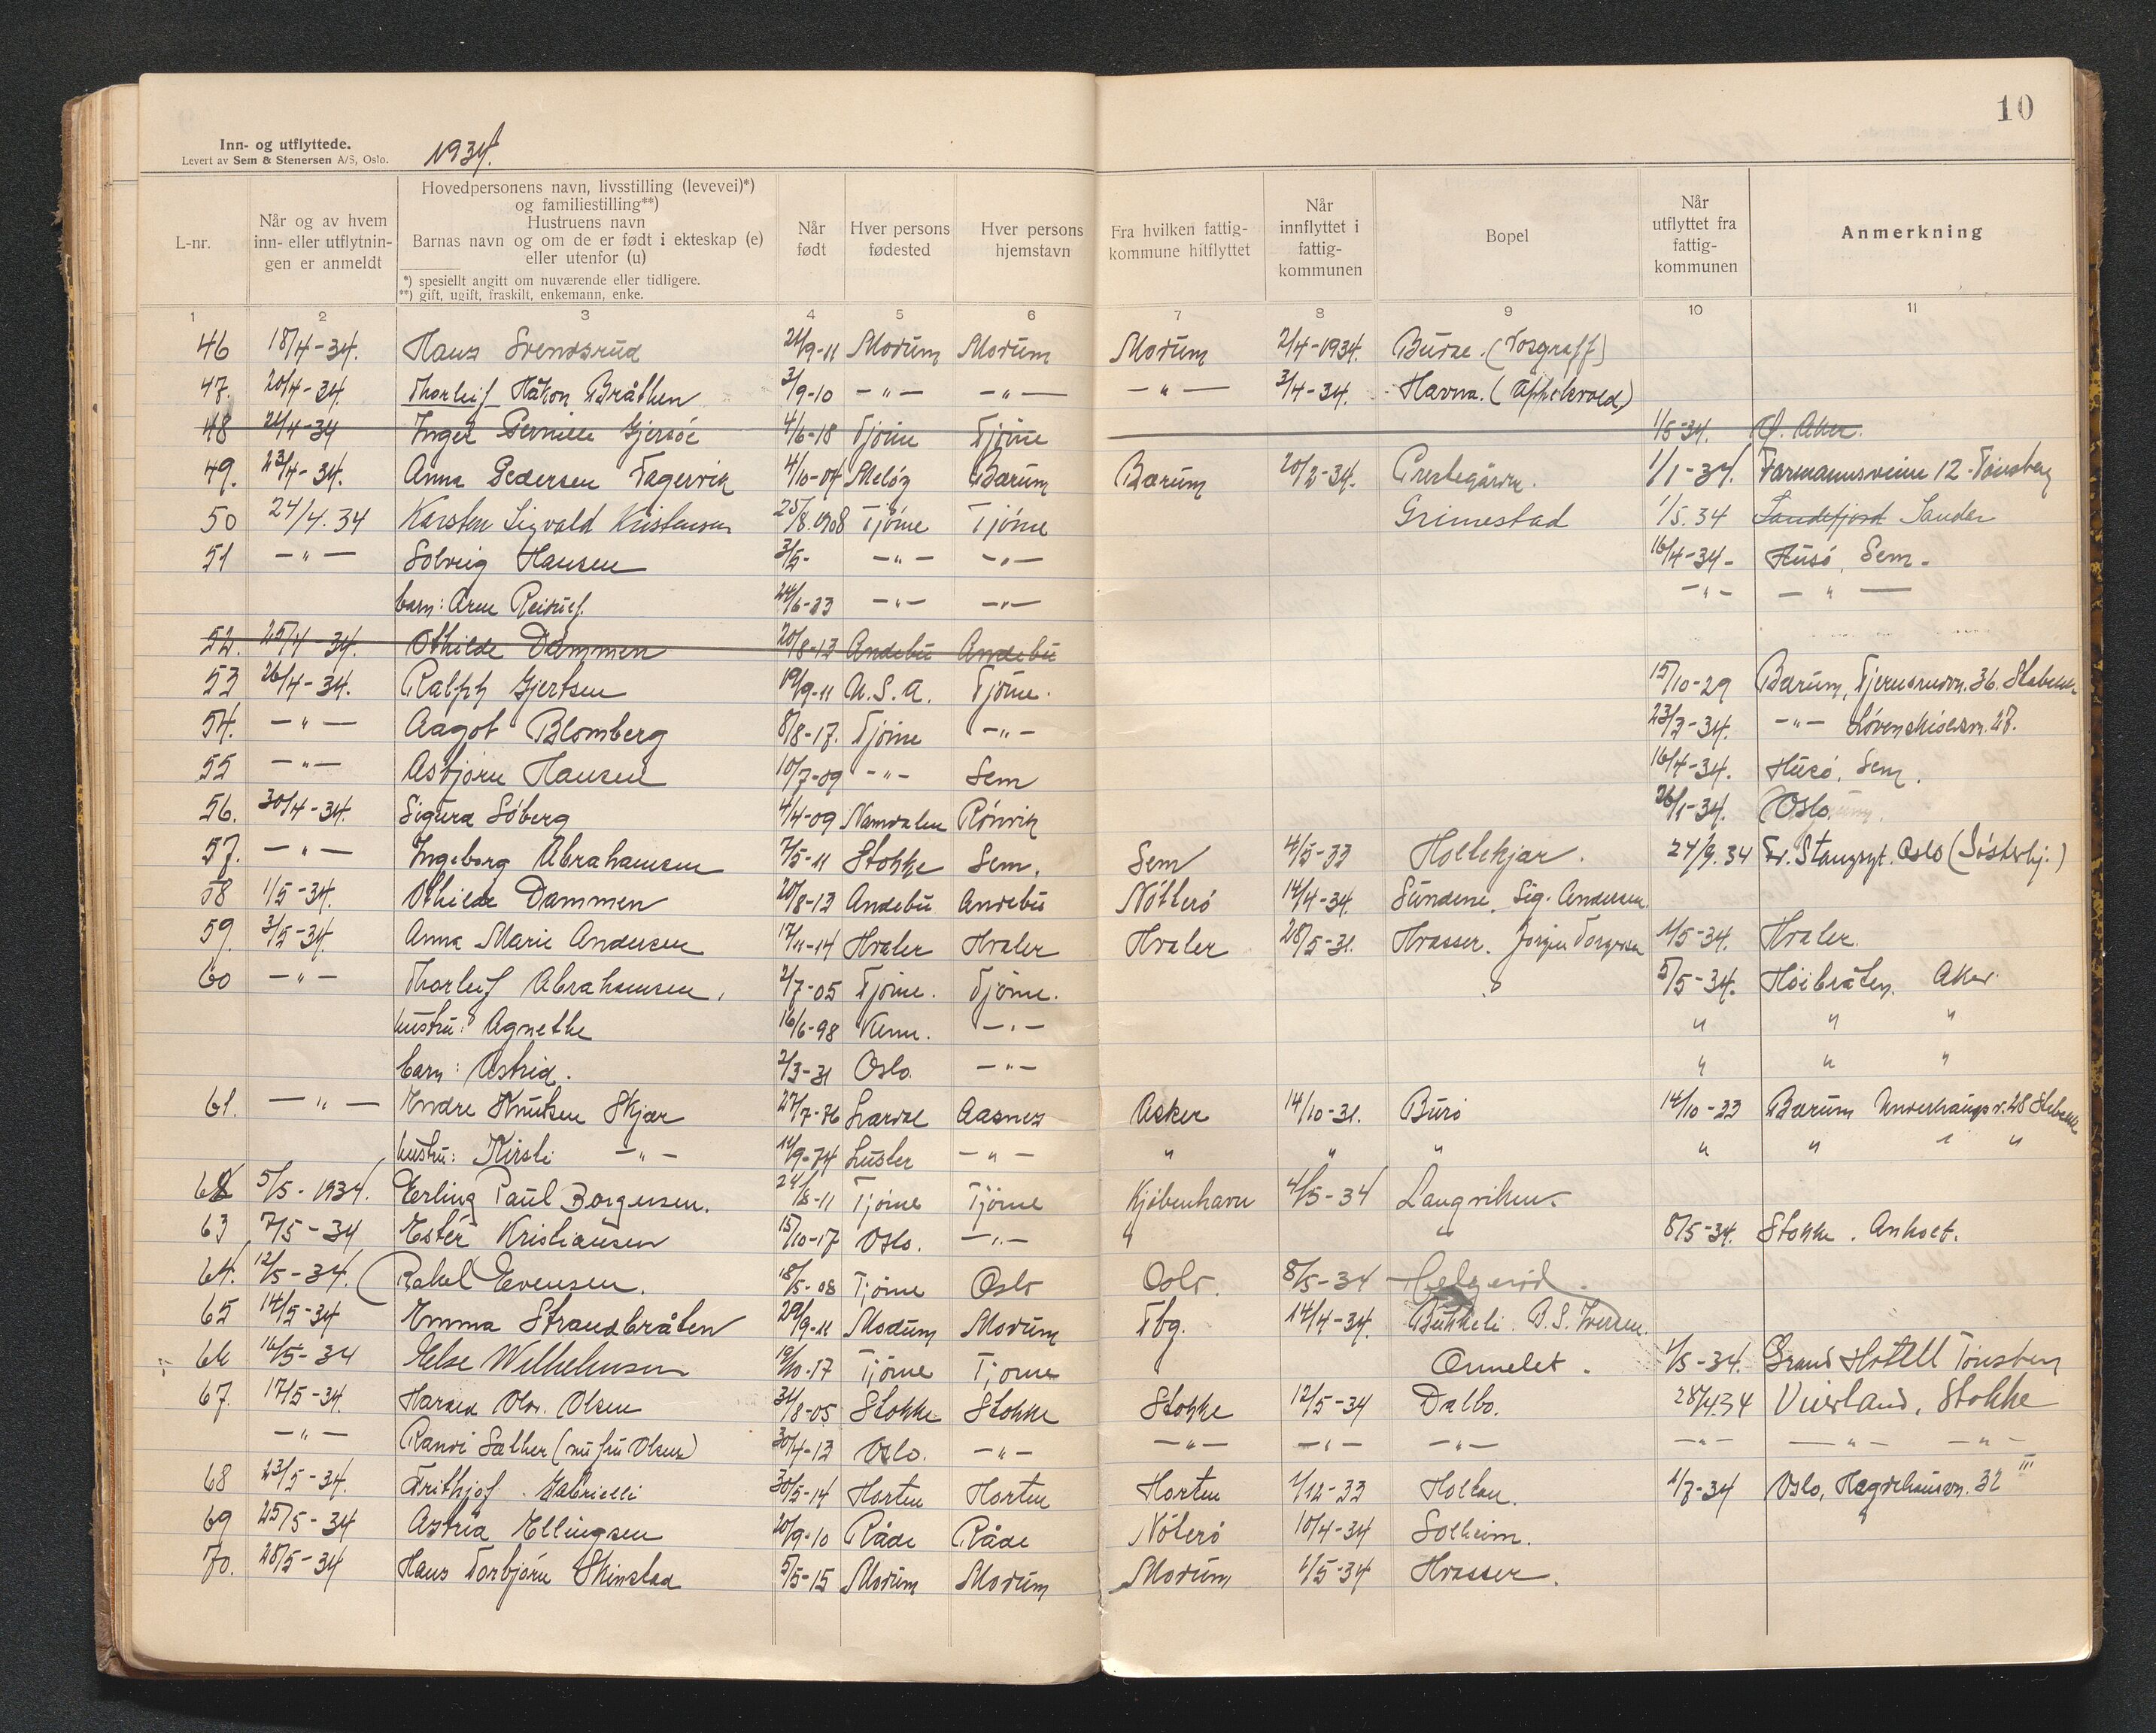 10
Inn- og utflyttede.
Levert av Sem & Stenersen A/S, Oslo.
1934.
L-nr. Når og av hvem inn- eller utflytnin- gen er anmeldt Hovedpersonens navn, livsstilling (levevei)*) og familiestilling**) Hustruens navn Barnas navn og om de er født i ekteskap (e) eller utenfor (u) Når født Hver persons fødested Hver persons hjemstavn Fra hvilken fattig- kommune hitflyttet Når innflyttet i fattig- kommunen Bopel Når utflyttet fra fattig- kommunen Anmerkning
*) spesiellt angitt om nuværende eller tidligere.
**) gift, ugift, fraskilt, enkemann, enke.
1 2 3 4 5 6 7 8 9 10 11
46 18/4-34. Hans Svendsrud 21/9-11 Modum Modum Modum 2/4-1934. Burse. (Vosgraff)
47. 20/4-34. Thorleif Håkon Bråthen 3/9-10 -"- -"- -"- 3/4-34. Havna.
48 21/4-34 Inger Pernille Gjersøe 4/6-18 Tjøme Tjøme 1/5-34. Aker.
49. 23/4-34. Anna Pedersen Fagervik 4/10-04 Meløy Bærum Bærum 20/2-34. Prestegården. 1/1-34. Farmannsveien 12-Tønsberg
50 24/4.34 Karsten Sigvald Kristensen 25/8.1908 Tjöme Tjöme Grimestad 1/5.34 Sandefjord Sandar
51 -"- Solveig Hansen 3/5- -"- -"- 16/4-34- Husö, Sem-
barn: Arne Reidulf. 24/6-33 -"- -"- -"- -"-
52. 25/4-34. Othilde Dammen 20/8-13 Andebu Andebu
53 26/4-34. Ralph Gjertsen 19/9-11 U.S.A. Tjöme. 15/10-29 Bærum, 36. Stabekk
54. -"- Aagot Blomberg 8/8-17. Tjöme -"- 23/2-34. -"- 27.
55 -"- Asbjørn Hansen 10/7-09 -"- Sem 16/4-34. Husö, Sem.
56. 30/4-34. Sigurd Söberg 4/4-09 Namdalen Rönvik 26/1-34. Oslo.
57. -"- Ingeborg Abrahamsen 7/5-11 Stokke Sem. Sem 4/5-33 Holtekjær. 24/9.34 Fr. Stangsgt. Oslo (Søsterhj.)
58 1/5-34. Othilde Dammen 20/8-13 Andebu Andebu Nötterö 14/4-34. Sundene, Sig. Andersen.
59. 3/5-34. Anna Marie Andersen 17/11-14 Hvaler Hvaler Hvaler 28/5-31. Hvasser. Jörgen 1/5-34. Hvaler.
60 -"- Thorleif Abrahamsen. 2/7-05 Tjöme. Tjöme. 5/5-34. Höibråten. Aker.
hustru: Agnethe 16/6-98 -"- " " "
barn: Astrid. 2/3-31 Oslo. -"- " " "
61. -"- Endre Knutsen Skjær 27/7-76 Lærdal Aasnes Asker 14/10-31. Burö 14/10-33 Bærum 28 Stabekk
hustru: Kirsti -"- 14/9-74 Luster -"- " " " " " " "
62 5/5-1934. Erling Paul Borgersen. 24/8-11 Tjöme Tjöme Kjöbenhavn 4/5-34 Langviken.
63 7/5-34 Ester Kristiansen 15/10-17 Oslo. -"- " " 8/5-34. Stokke.
64. 12/5-34. (Rakel Evensen. 18/5-08 Tjöme Oslo Oslo. 8/5-34 Helgerød.
65 14/5-34 Emma Strandbråten 29/9-11 Modum Modum Tbg. 14/4-34. B.S. Iversen.
66 16/5-34 Else Wilhelmsen 19/10-17 Tjöme Tjöme Ormelet. 1/5-34. Grand Hotell Tönsberg
67. 17/5-34. Harald Olsen 31/8-05 Stokke Stokke Stokke 12/5-34 Dalbo. 28/4.34 Veierland, Stokke
-"- Randi Sæther (nu fru Olsen) 30/4-13 Oslo. -"- -"- -"- -"- -"- -"- -"-
68 23/5-34. Frithjof Gabrielli 30/5-14 Horten Horten Horten 1/12-33 Holtan. 1/7-34 Oslo, Hegdehausvn. 32 III
69 25/5-34 Astrid Ellingsen 20/9-10 Råde Råde Nöterö 10/4-34 Solheim.
70. 28/5-34 Hans Torbjørn Skinstad 5/5-15 Modum Modum Modum 1/5-34 Hvasser.